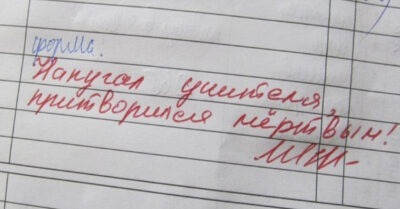 форма.
Напугал учителя,
притворился мёртвым!